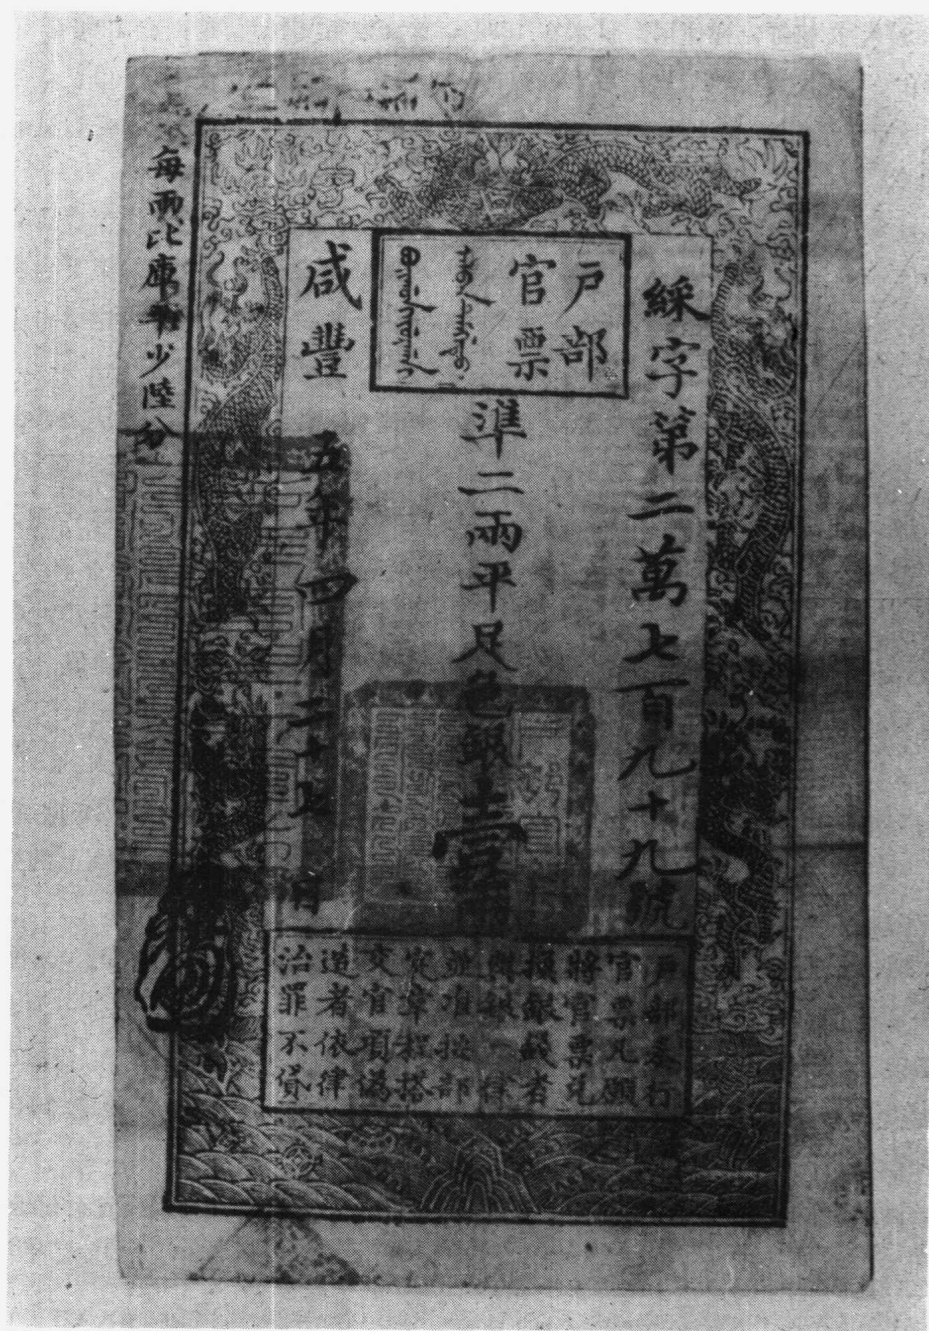 綵字第二萬七百九十九號
戶部
官票
準二兩平足色銀壹兩
咸豐五年四月二十七日
戶部奏行
官票凡願
將官票兌
換銀錢者
與銀一律
並准按部
定章程搭
交官項偽
造者依律
治罪不貸
每兩比庫平少陸分